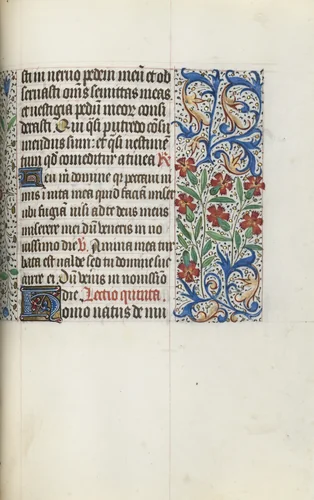 sti in neruo pedem meū et ob
seruasti om̄s semitas meas
et vestigia pedū meoɽ consi
derasti. Qui qͥsi putredo cōsu
mendus sum: et qͥsi vestimē
tum qd̄ comeditur a tinea. R̸
Hei m̄ domine qꝛ peccaui ni
mis in vita mea quid faciā miser
ubi fugiā nisi ad te deus meus
miserere mei dū veneris in no
uissimo die. V. Anima mea tur
bata est valde sed tu domine suc
curre ei. Dū veneris in nouissīo
die. Lectio quinta.
Homo natus de mu